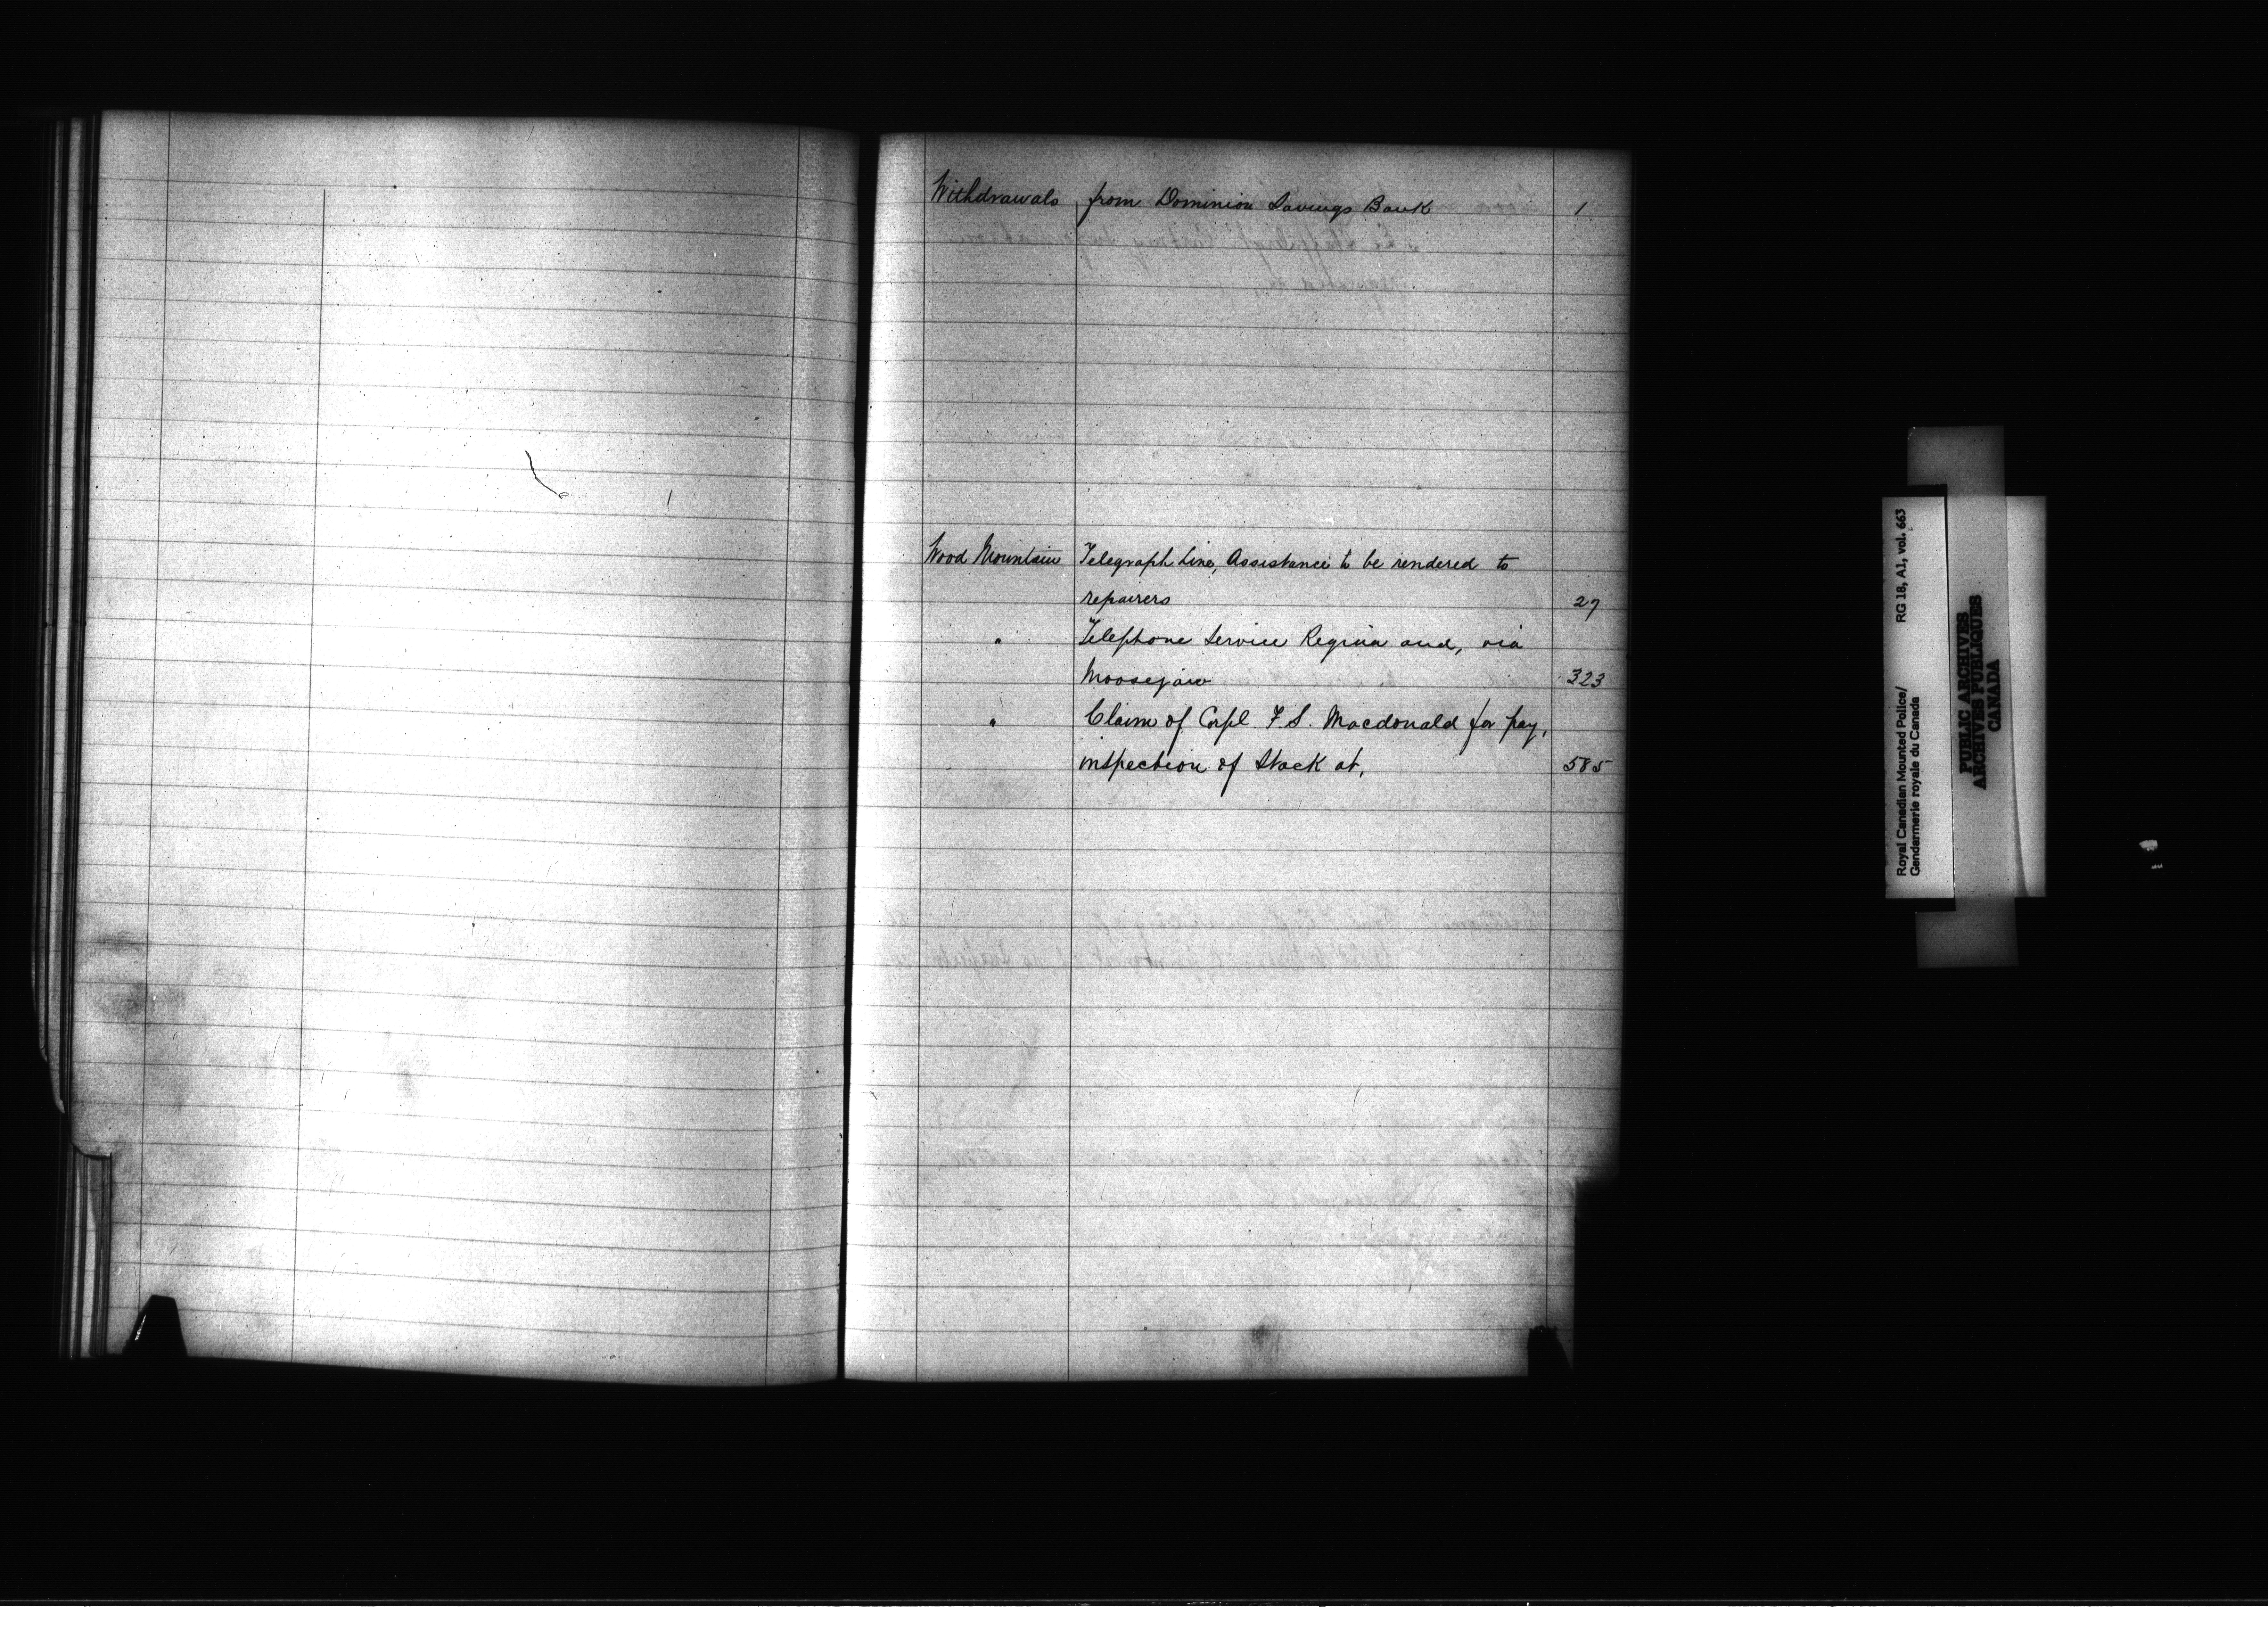 Withdrawals from Dominion Savings Bank 1
Wood Mountain Telegraph Line, Assistance to be rendered to
repairers 27
" Telephone Service Regina and, via
Moosejaw 323
" Claim of Corpl F. S. Macdonald for pay,
inspection of Stock at, 585
Royal Canadian Mounted Police/ RG 18, A1, vol. 663
Gendarmerie royale du Canada
PUBLIC ARCHIVES
ARCHIVES PUBLIQUES
CANADA